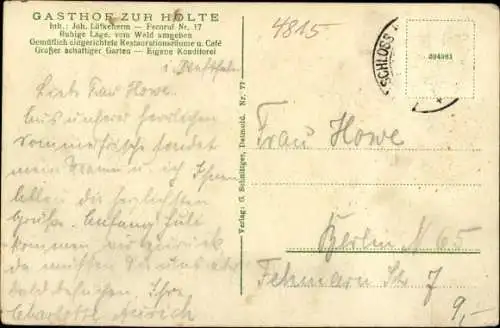 GASTHOF ZUR HOLTE
Inh.: Joh. Lütkehorm — Fernruf Nr. 17
Ruhige Lage, vom Wald umgeben
Gemütlich eingerichtete Restaurationsräume u. Café
Großer schattiger Garten — Eigene Konditorei
i. Westfalen
Liebe Frau Howe.
Aus unserer herrlichen
Sommerfrische sendet
mein Mann u. ich Ihnen
allen die herzlichsten
Grüße. Anfang Juli
kommen wir zurück
da müssen Sie uns aber
bald besuchen. Ihre
Charlotte
Verlag: G. Schnittger, Detmold. Nr. 77
4815
SCHLOSS
394963
Frau Howe
Berlin N 65
Fehmarn Str. 7
9,-